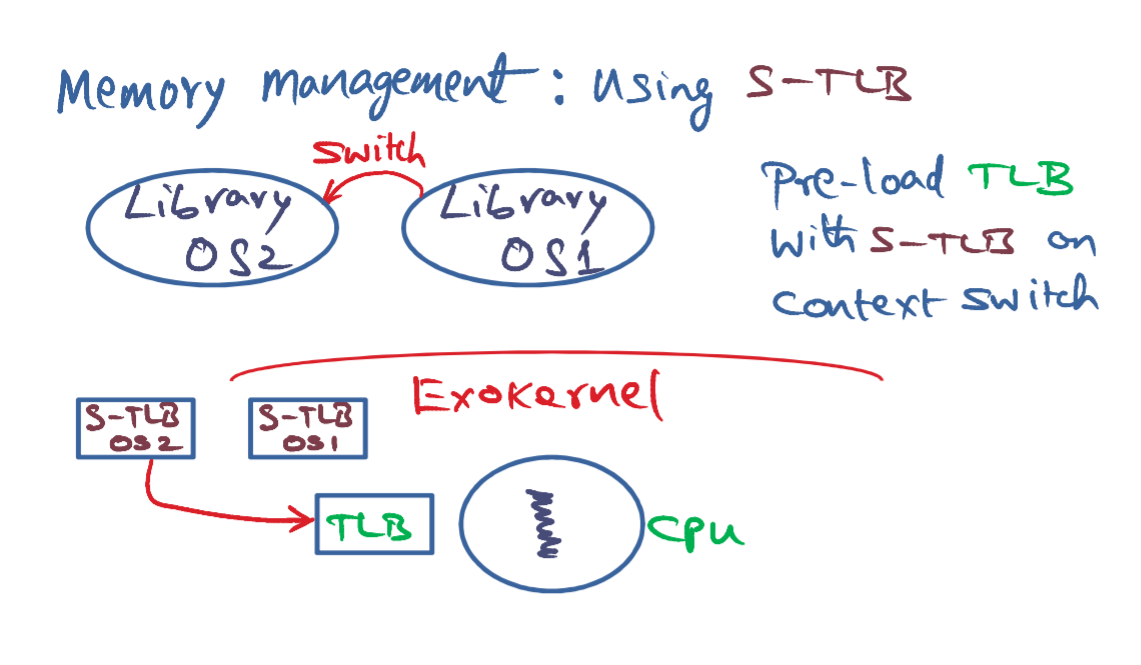 Memory management : Using S-TLB
Switch
Library
OS2
Library
OS1
Pre-load TLB
with S-TLB on
Context switch
Exokernel
S-TLB
OS2
S-TLB
OS1
TLB
CPU